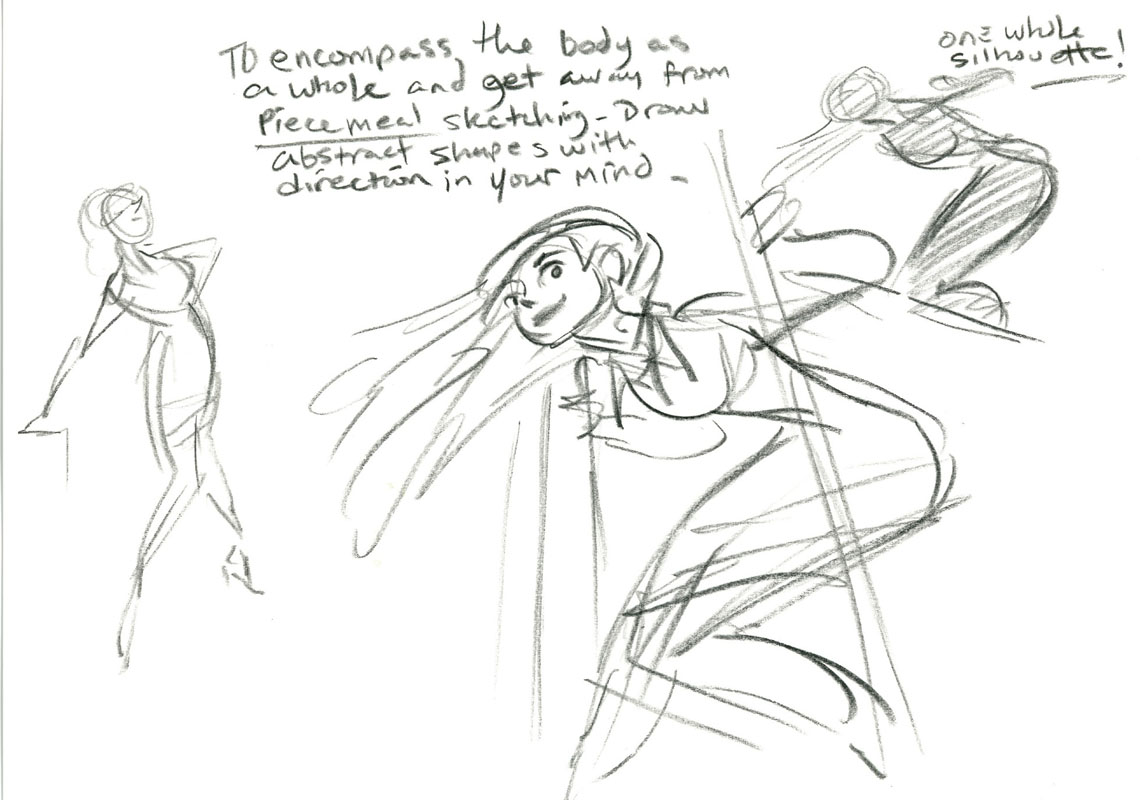 To encompass the body as
a whole and get away from
Piecemeal sketching - Draw
abstract shapes with
direction in your mind -
one whole
silhouette!